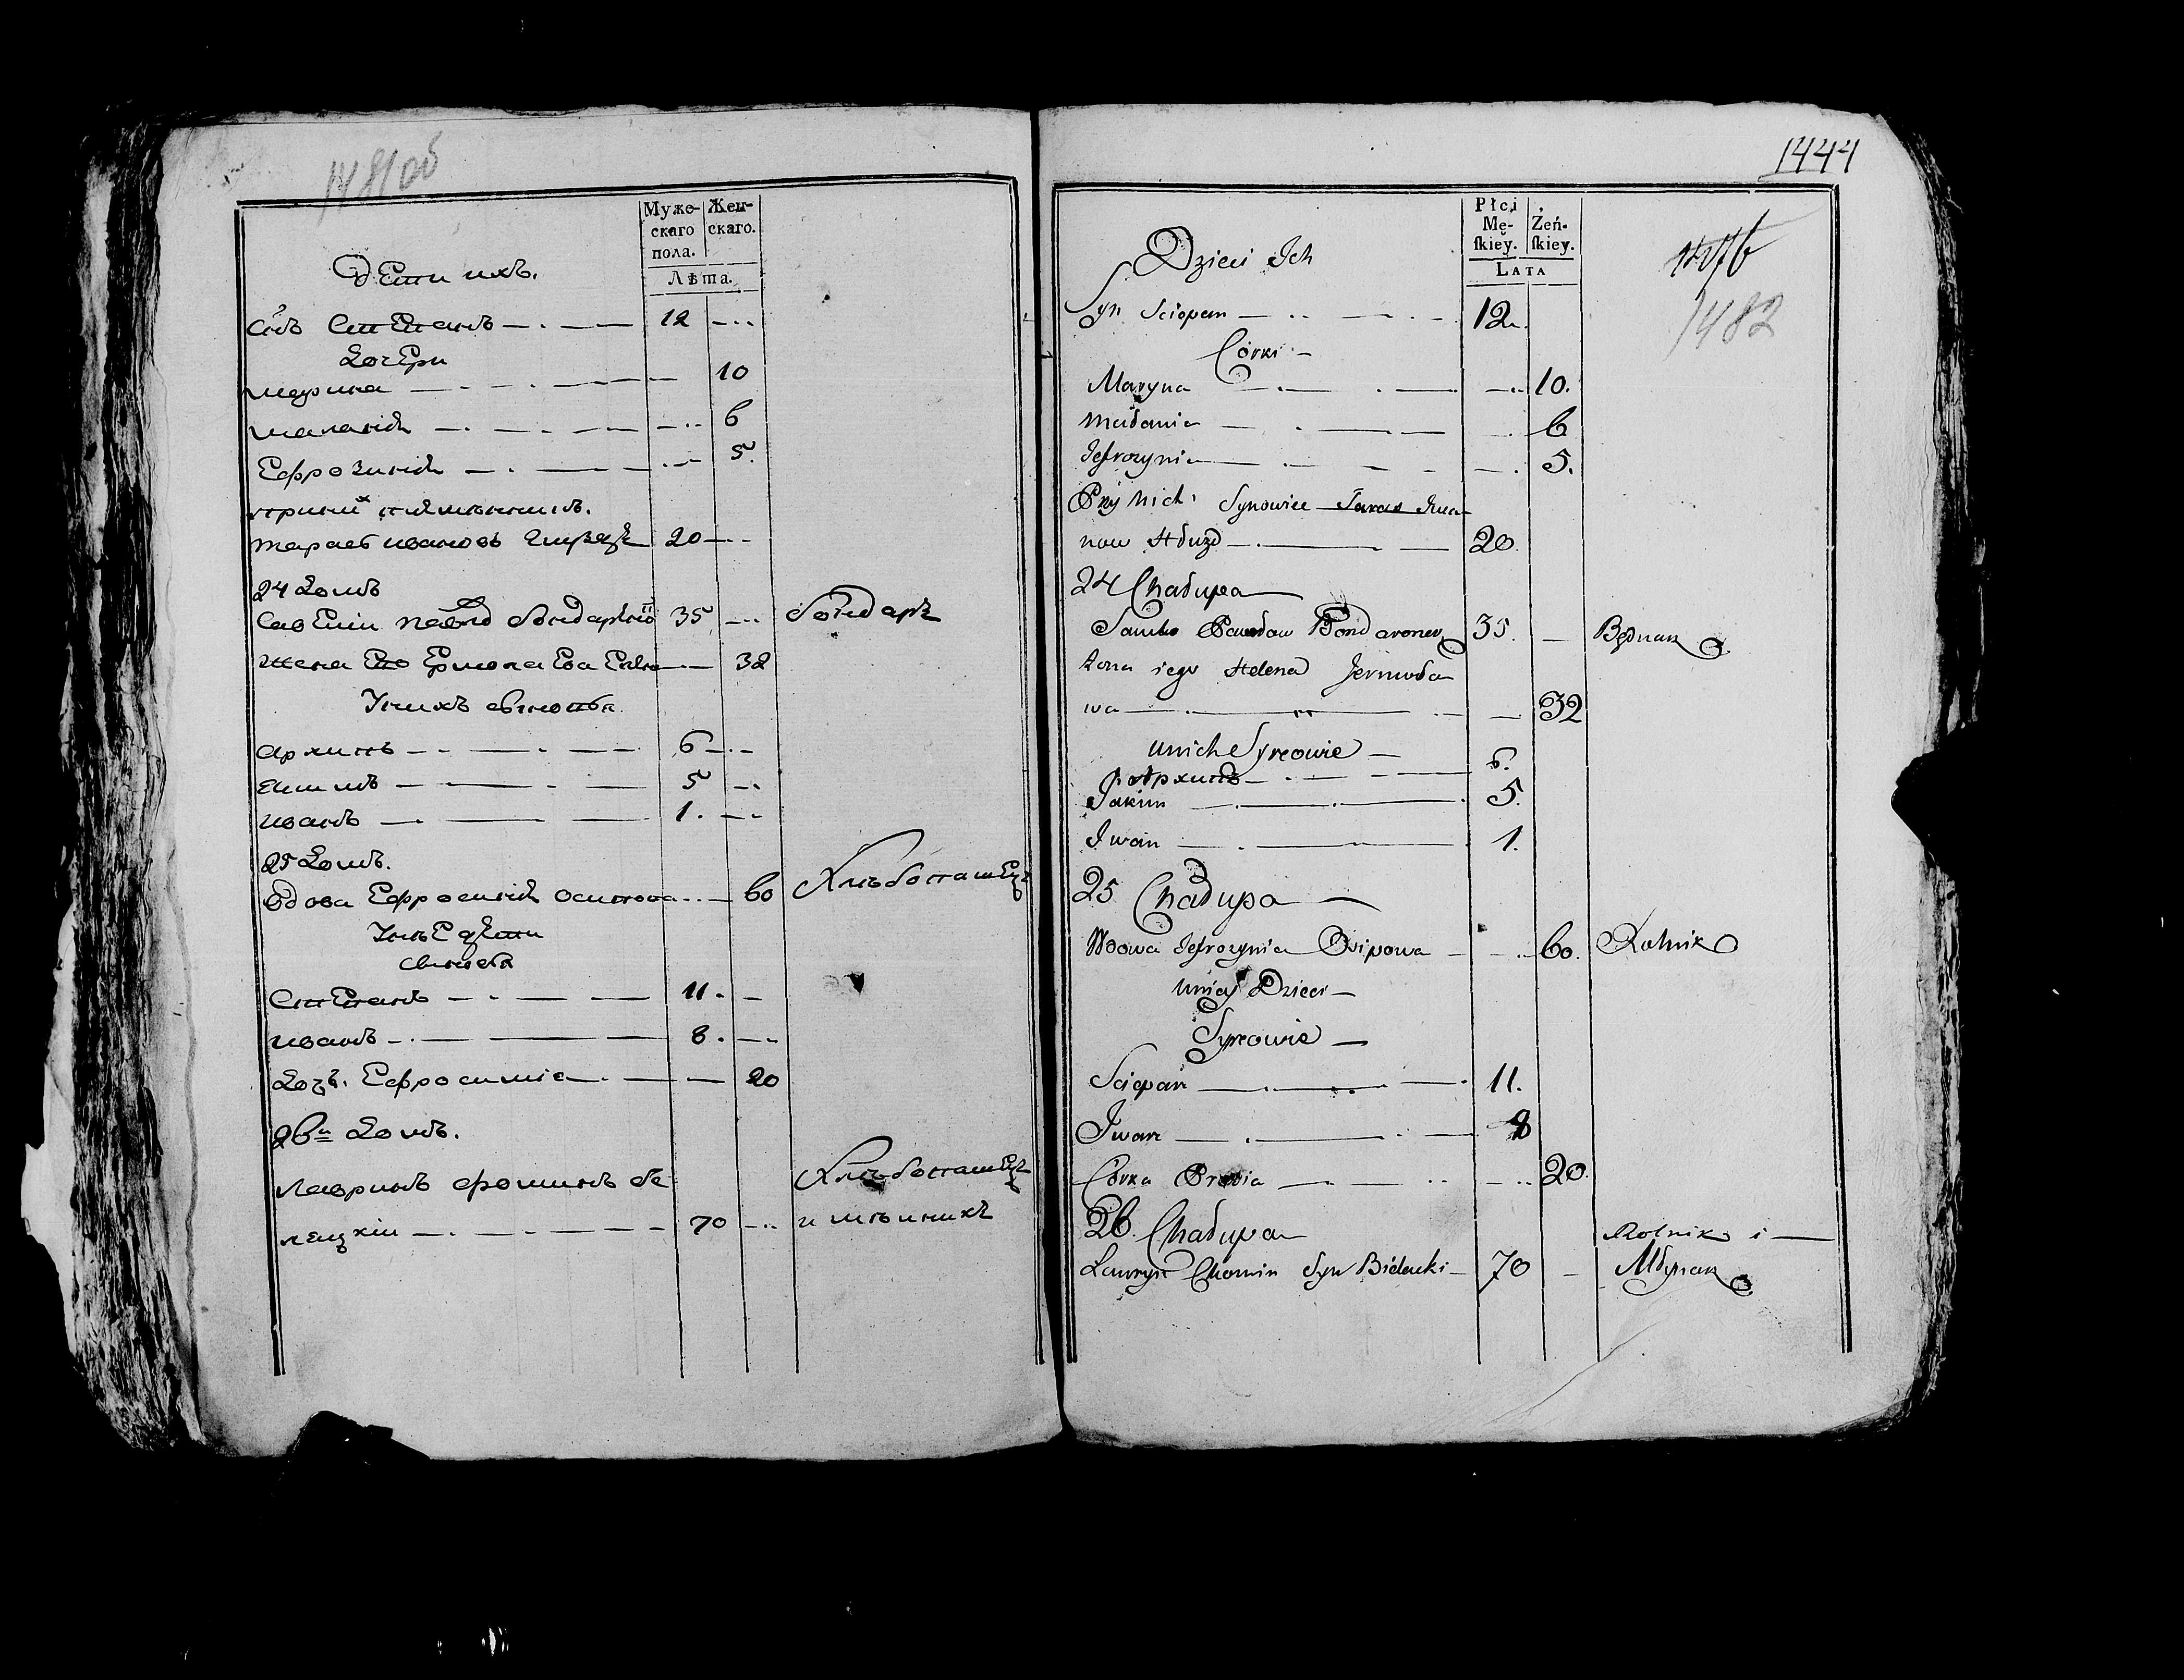 1481об
Муже-
скаго
пола.
Жен-
скаго.
Лѣта.
Дети ихъ.
Снъ Степанъ 12
Дочери
марина 10
маланія 6
Ефрозинія 5.
при ни х племенникъ.
тарасъ ивановъ 20
24 Домъ
Савелій Бондар 35 бондарь
жена Его Ермолаева 32
У нихъ сыновья
архипъ 6
екимъ 5
иванъ 1.
25 Домъ.
вдова Ефросинія осипова 60 Хлѣбопашецъ
У нѣе дети
сыновья
Степанъ 11.
иванъ 8.
Дочь. Ефросимія 20
26й Домъ.
лавринъ фоминъ бе
лецкіи 70
Хлѣбопашецъ
и мѣлникъ
1444
Płci
Mę-
ſkiey.
Żeń-
ſkiey.
LATA
1482
Dzieci Ich
Syn Sciepan 12.
Córki
Maryna 10.
Małania 6
Jefrozynia 5.
Przy Nich Synowiec Taras Iwa
now 20.
24 Chałupa
Sawko Pawłow 35. Bednarz
żona iego Helena Jermoła
wa 32
u nich Synowie
архипъ 6.
Jakim 5.
Iwan 1.
25 Chałupa
Wdowa Jefrozynia Osipowa 60. Rolnik
u niey Dzieci
Synowie
Sciepan 11.
Iwan 8
Córka 20.
26. Chałupa
Rolnik i
Ławryn Chomin Syn Bielecki 70 Młynarz